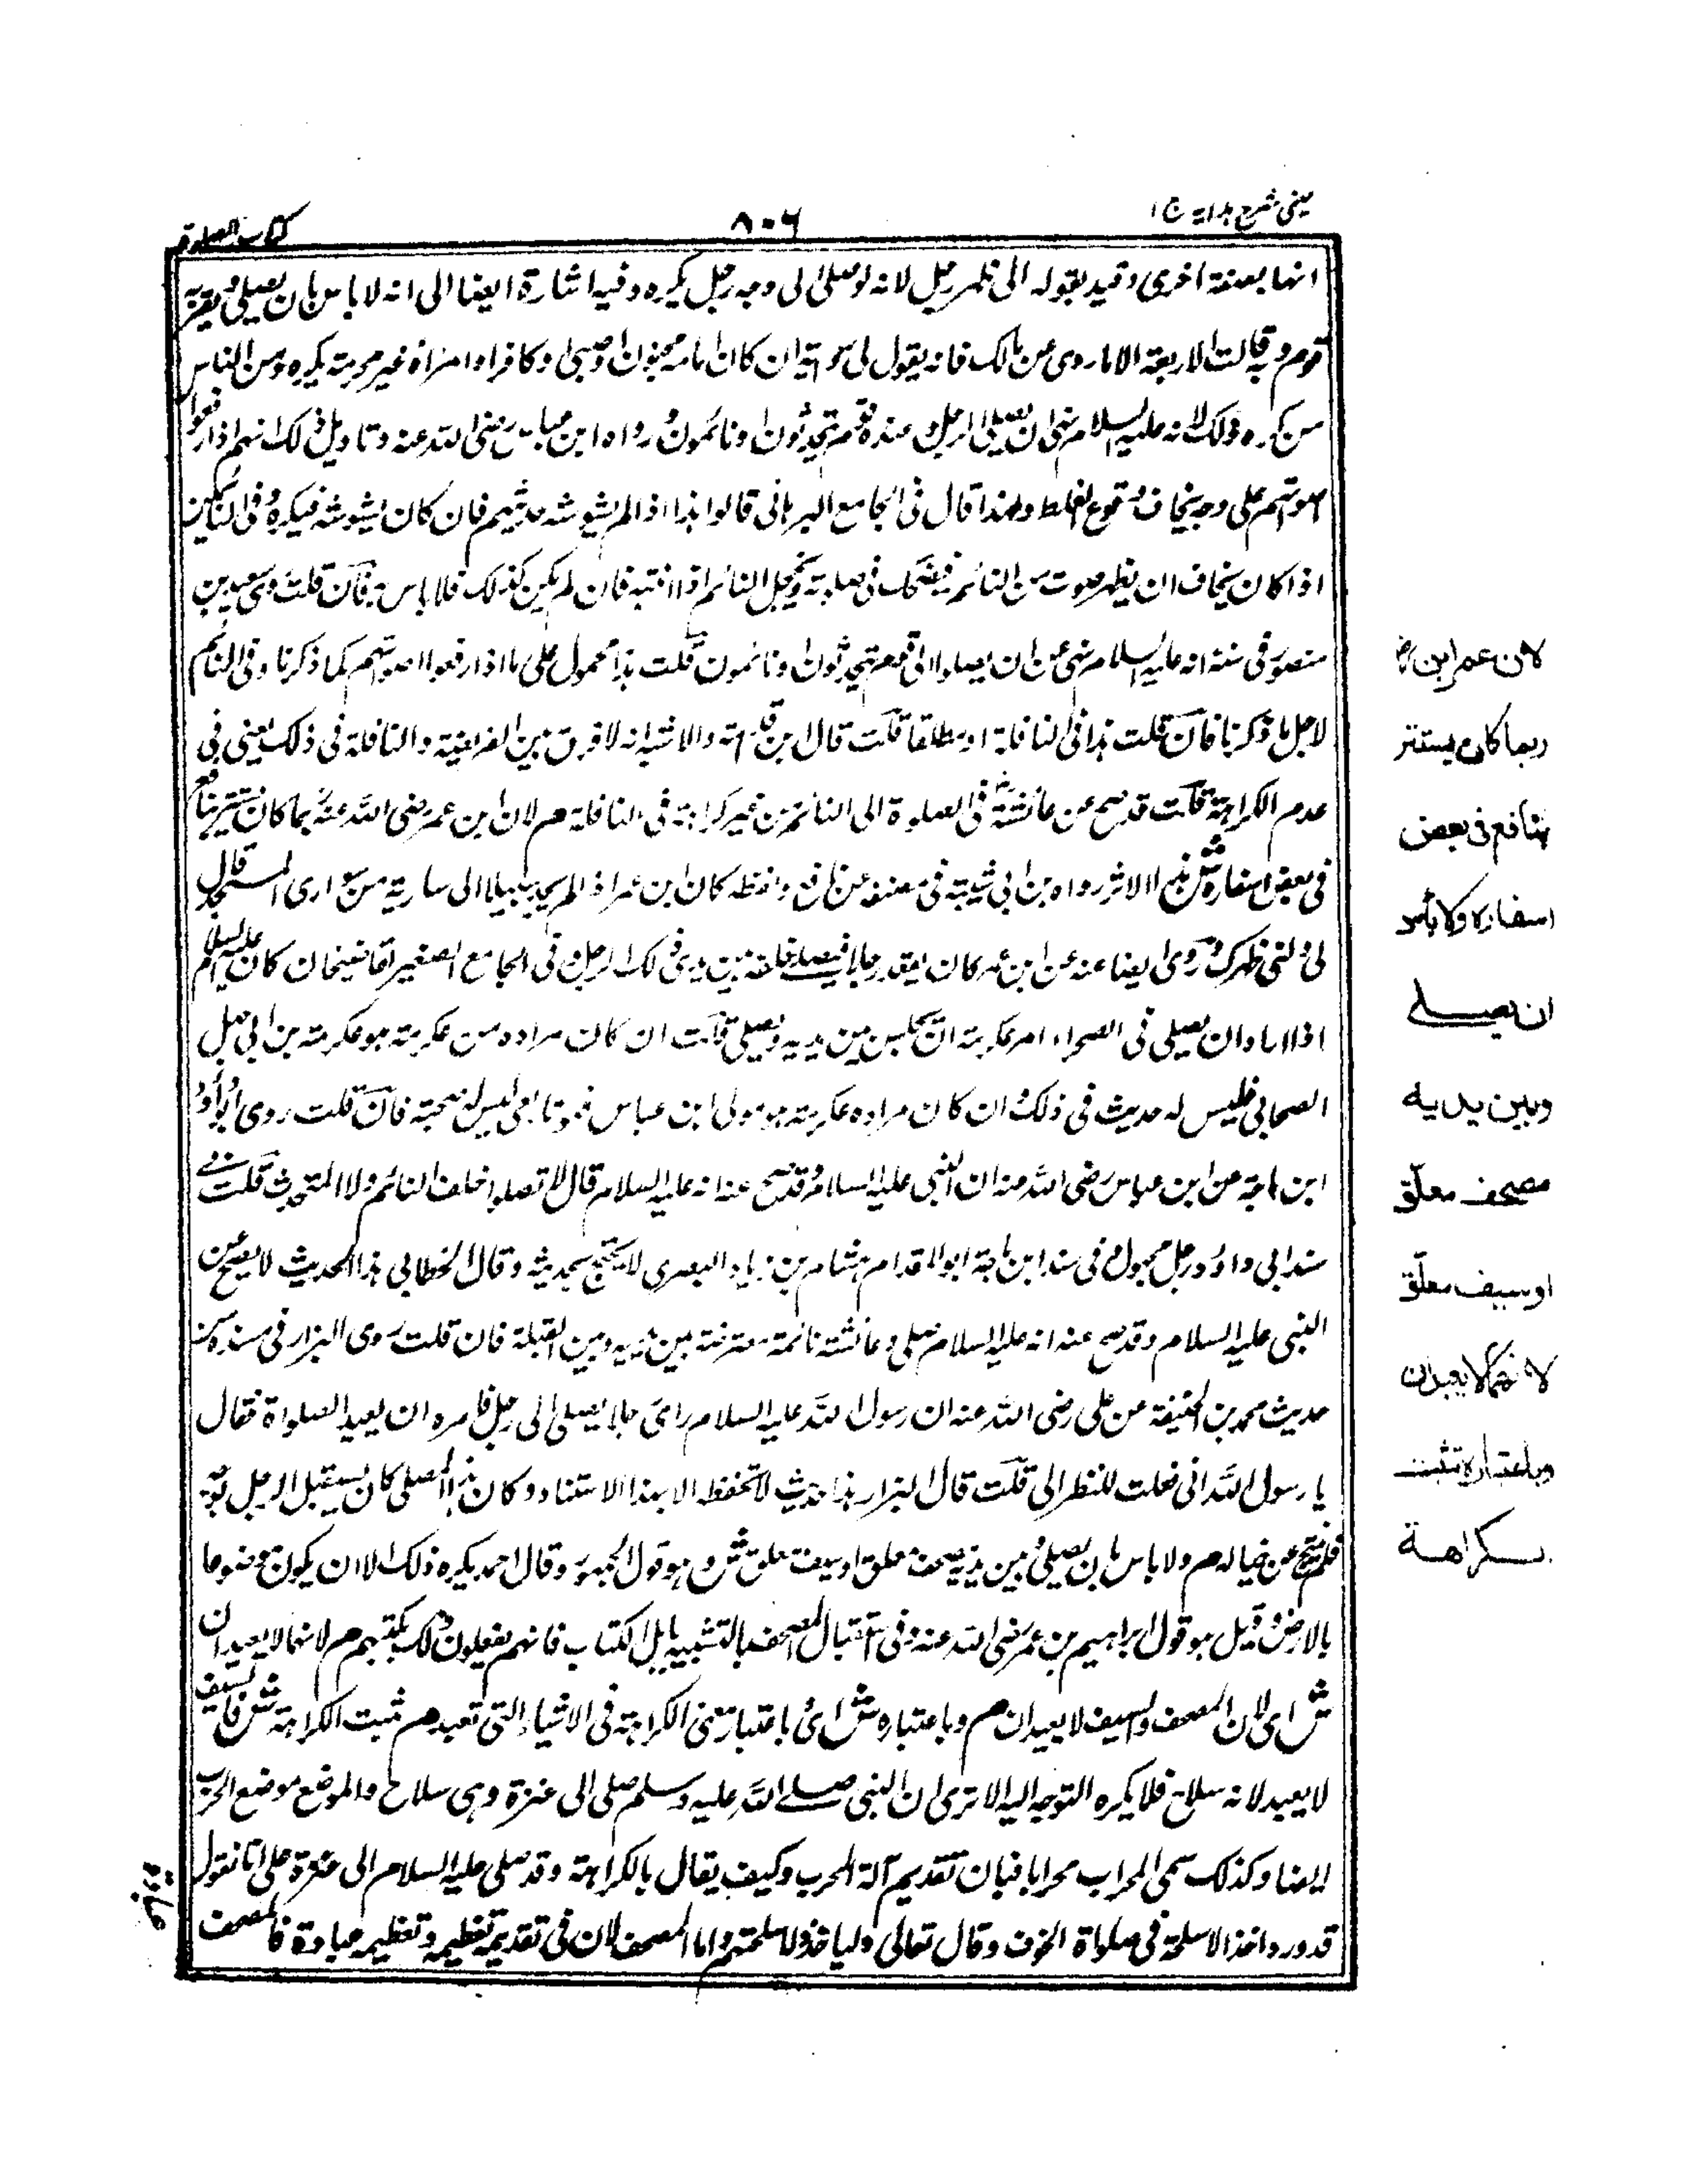 عینی شرح ہدایہ ج ۱
۸۰۶
کتاب الصلوة
انها بصفة اخرى وقيد بقوله الى ظهر رجل لانه لو صلى الى وجه رجل يكره وفيه اشارة ايضا الى انه لا باس بان يصلى وبقربه
قوم وبه قالت الاربعة الا ما روى عن مالك فانه يقول الى سوتة ان كان امامه مجنون او صبى او كافر او امراة غير محرمة يكره ومن الناس
من كره ذلك لانه عليه السلام نهى ان يصلى الرجل وعنده قوم يتحدثون او نائمون رواه ابن عباس رضى الله عنه وتاويل ذلك انهم اذا رفعوا
اصواتهم على وجه يخاف وقوع الغلط ولهذا قال فى الجامع البرهانى قالوا هذا اذا لم يشوشه حديثهم فان كان يشوشه فيكره وفى النائمين
اذا كان يخاف ان يظهر صوت من النائم فيضحك فى صلوته ويخجل النائم اذا انتبه فان لم يكن كذلك فلا باس به فان قلت روى سعيد بن
منصور فى سننه انه عليه السلام نهى عن ان يصلوا الى قوم يتحدثون او نائمون قلت هذا محمول على ما اذا رفعوا اصواتهم كما ذكرنا وفى النائم
لاجل ما ذكرنا فان قلت هذا فى النافلة او مطلقا قلت قال ابن قدامة والاشبه انه لا فرق بين الفريضة والنافلة فى ذلك يعنى فى
عدم الكراهة قلت قد صح عن عائشة فى الصلوة الى النائم من غير كراهة فى النافلة م لان ابن عمر رضى الله عنه ربما كان يستتر بنافع
فى بعض اسفاره ش هذا الاثر رواه ابن ابى شيبة فى مصنفه عن نافع ولفظه كان ابن عمر اذا لم يجد سبيلا الى سارية من سوارى المسجد قال
لى ولنى ظهرك وروى ايضا عنه عن ابن عمر كان يقعد رجلا فيصلى خلفه بين يدى ذلك الرجل وفى الجامع الصغير لقاضيخان كان عليه السلام
اذا اراد ان يصلى فى الصحراء امر عكرمة ان يجلس بين يديه ويصلى قلت ان كان مراده من عكرمة هو عكرمة بن ابى جهل
الصحابى فليس له حديث فى ذلك وان كان مراده عكرمة هو مولى ابن عباس فهو تابعى ليس له صحبة فان قلت روى ابو داود
ابن ماجة عن ابن عباس رضى الله عنه ان النبى عليه السلام وقد صح عنه انه عليه السلام قال لا تصلوا خلف النائم ولا المتحدث قلت فى
سند ابى داؤد رجل مجهول وفى سند ابن ماجة ابو المقدام هشام بن زياد البصرى لا يحتج بحديثه وقال الخطابى هذا الحديث لا يصح عن
النبى عليه السلام وقد صح عنه انه عليه السلام صلى وعائشة نائمة معترضة بين يديه وبين القبلة فان قلت روى البزار فى مسنده من
حديث محمد بن الحنيفة عن على رضى الله عنه ان رسول الله عليه السلام راى رجلا يصلى الى رجل فامره ان يعيد الصلواة فقال
يا رسول الله انى فعلت للنظر الى قلت قال البزار هذا حديث لا تحفظه الا بهذا الاستناد وكان هذا المصلى كان يستقبل الرجل بوجهه
فلم ينتح عن خياله م ولا باس بان يصلى وبين يديه مصحف معلق او سيف معلق ش وهو قول الجمهور وقال احمد يكره ذلك الا ان يكون موضوعا
بالارض وقيل هو قول ابراهيم بن عمر رضى الله عنه وفى استقبال المصحف بالتشبيه باهل الكتاب فانهم يفعلون ذلك بكتبهم م لانهما لا يعبدان
ش اى لان المصحف والسيف لا يعبدان م وباعتباره ش اى باعتبار معنى الكراهة فى الاشياء التى تعبد م ثبت الكراهة ش فالسيف
لا يعبد لانه سلاح فلا يكره التوجه اليه الا ترى ان النبى صلى الله عليه وسلم صلى الى عنزة وهى سلاح والموضع موضع الحرب
ايضا وكذلك سمى المحراب محرابا فبان تقديم آلة الحرب وكيف يقال بالكراهة وقد صلى عليه السلام الى عنزة على انا نقول
قد ورد اخذ الاسلحة فى صلواة الخوف وقال تعالى وليأخذوا اسلحتهم واما المصحف لان فى تقديمه تعظيمه وتعظيمه عبادة فالمصحف
لان عمر ابن رض
ربما كان يستتر
بنافع فى بعض
اسفاره ولا بأس
ان يصلى
وبين يديه
مصحف معلّق
او سيف معلّق
لانهما لا يعبدان
وباعتباره تثبت
الكراهة